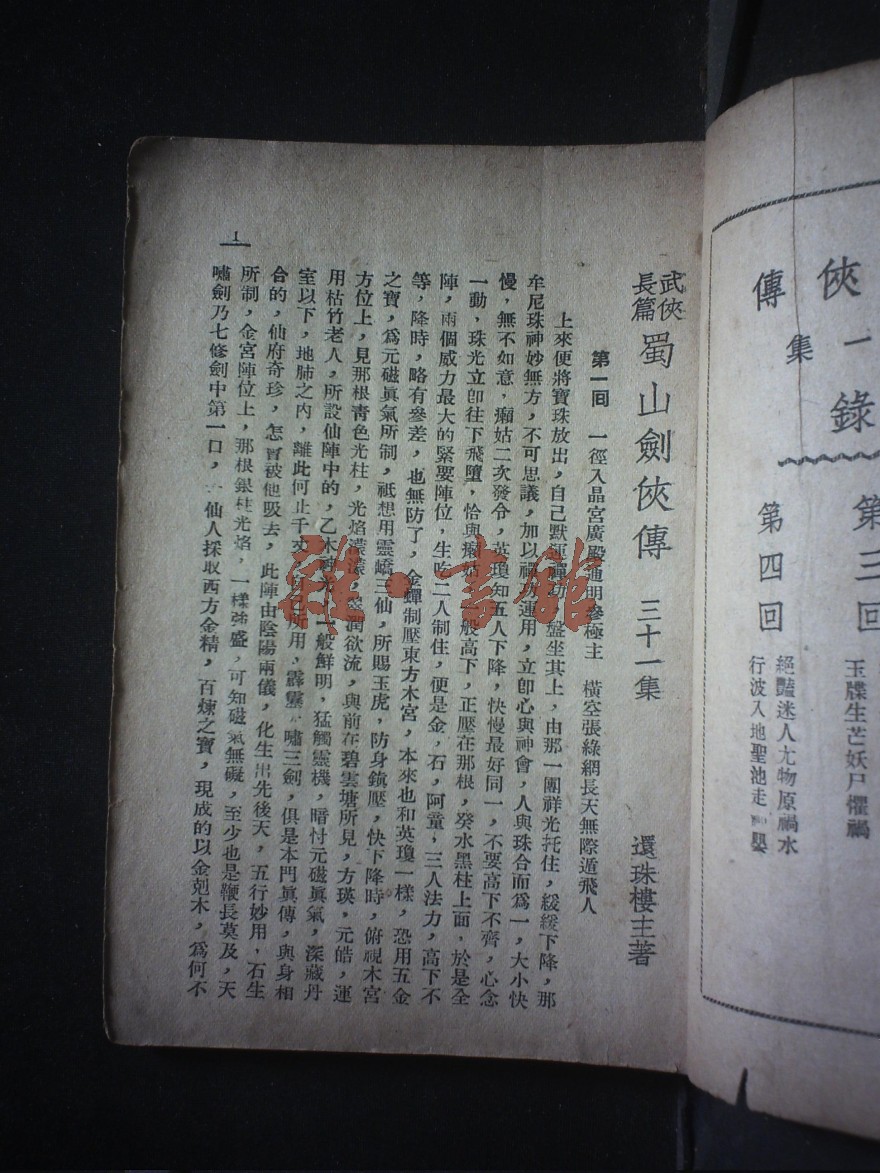 俠
傳
一
集
錄
第三回
玉牒生芒妖尸懼禍
第四回
絕豔迷人尤物原禍水
行波入地聖池走
嬰
武俠
長篇
蜀山劍俠傳 三十一集
還珠樓主著
第一回 一徑入晶宮廣殿通明參極主 橫空張綠網長天無際遁飛人
上來便將寶珠放出，自己默運禪功，盤坐其上，由那一團祥光托住，緩緩下降，那
牟尼珠神妙無方，不可思議，加以禪功運用，立卽心與神會，人與珠合而爲一，大小快
慢，無不如意，癩姑二次發令，英瓊知五人下降，快慢最好同一，不要高下不齊，心念
一動，珠光立卽往下飛墮，恰與癩姑一般高下，正壓在那根，癸水黑柱上面，於是全
陣，兩個威力最大的緊要陣位，生吃二人制住，便是金，石，阿童，三人法力，高下不
等，降時，略有參差，也無防了，金蟬制壓東方木宮，本來也和英瓊一樣，恐用五金
之寶，爲元磁眞氣所制，祇想用靈嶠三仙，所賜玉虎，防身鎭壓，快下降時，俯視木宮
方位上，見那根靑色光柱，光焰濛濛，潤欲流，與前在碧雲塘所見，方瑛，元皓，運
用枯竹老人，所設仙陣中的，乙木神光，一般鮮明，猛觸靈機，暗忖元磁眞氣，深藏丹
室以下，地肺之內，離此何止千丈，自己所用，霹靂，嘯三劍，俱是本門眞傳，與身相
合的，仙府奇珍，怎會被他吸去，此陣由陰陽兩儀，化生出先後天，五行妙用，石生
所制，金宮陣位上，那根銀柱光焰，一樣強盛，可知磁氣無礙，至少也是鞭長莫及，天
嘯劍乃七修劍中第一口，仙人採取西方金精，百煉之寶，現成的以金剋木，爲何不
1
雜·書館